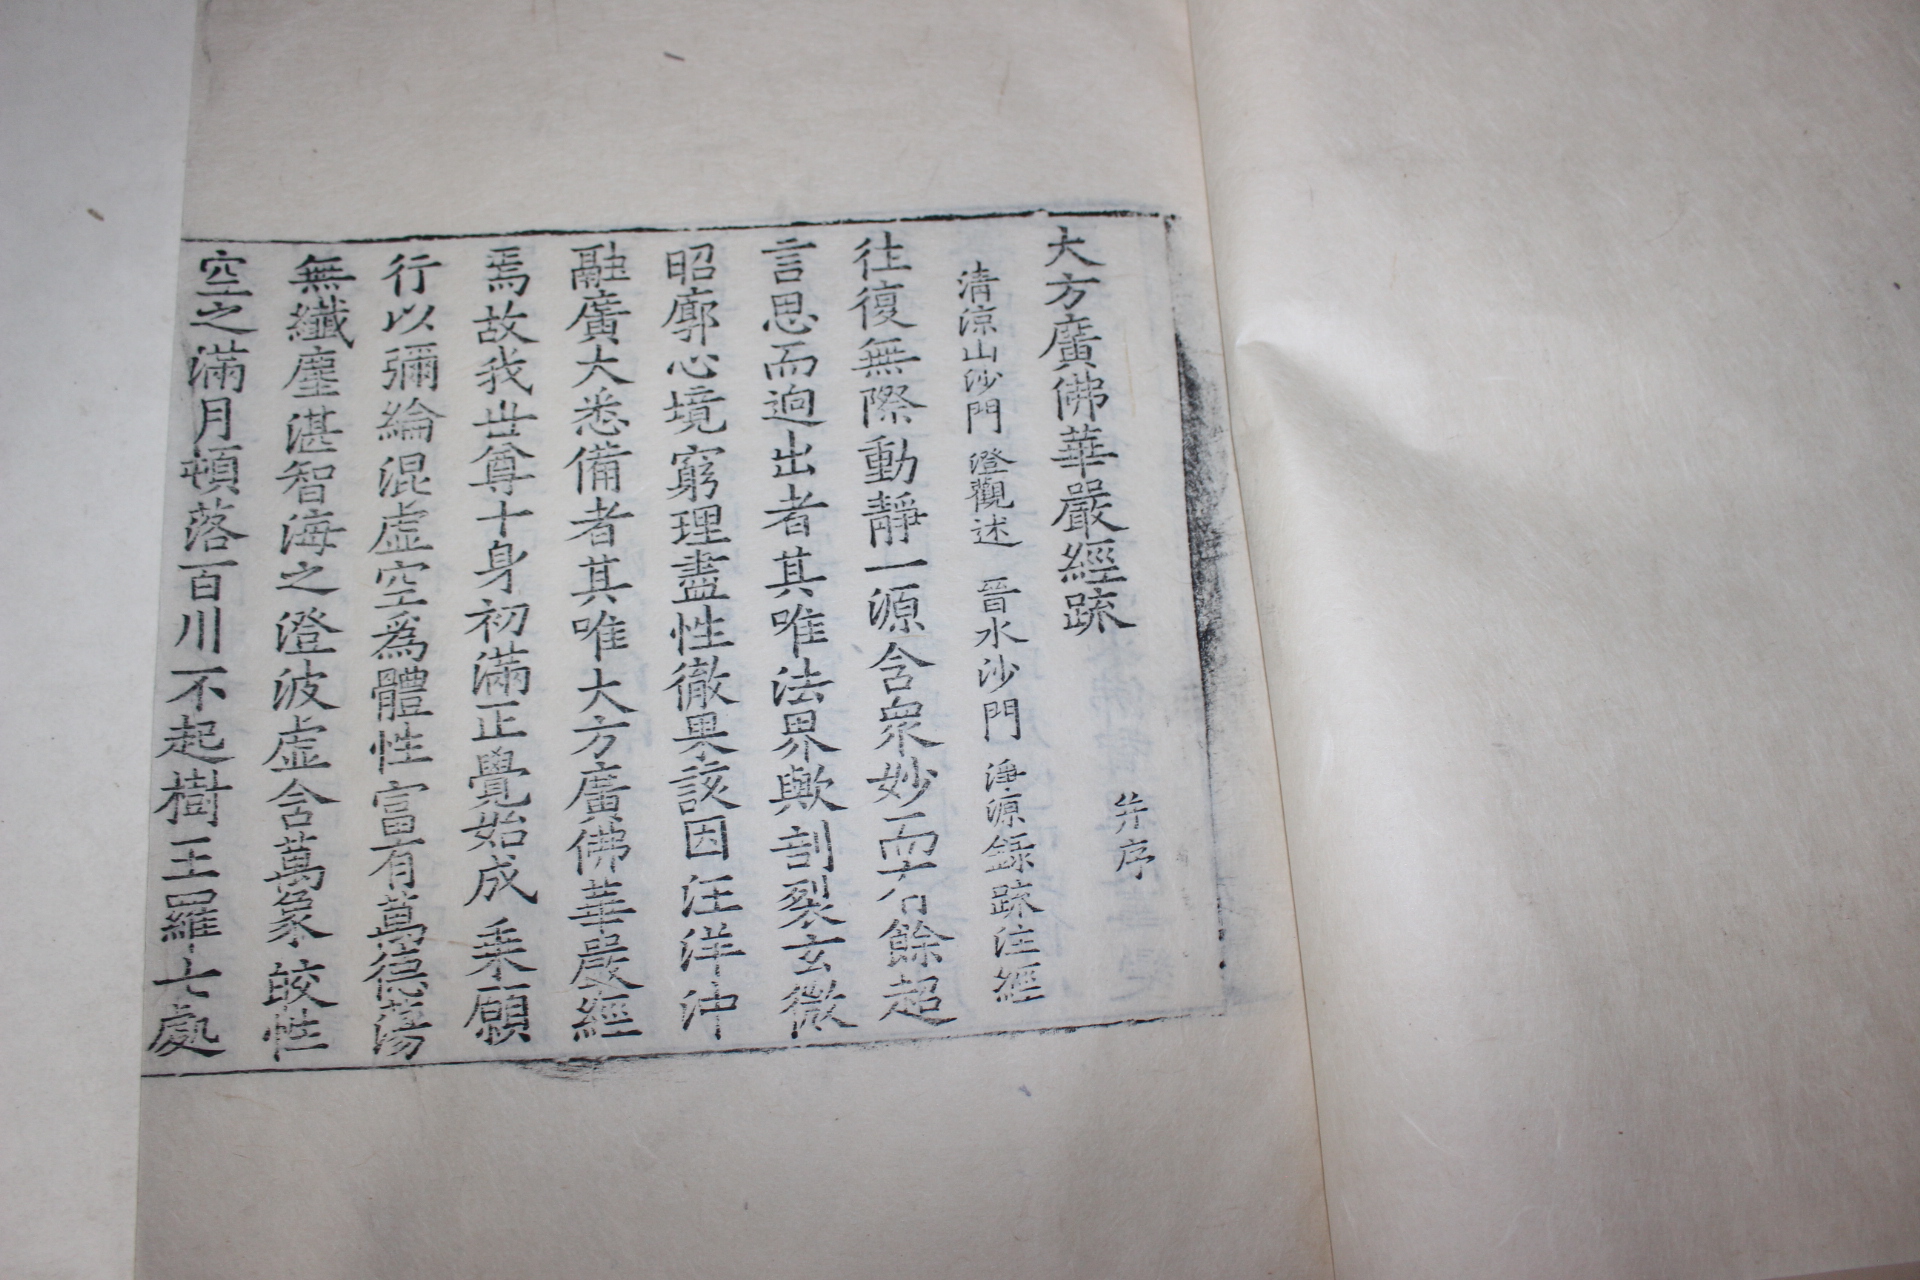 大方廣佛華嚴經䟽 并序
清涼山沙門 澄觀述 晉水沙門 淨源錄䟽注經
往復無際動靜一源含衆妙而有餘超
言思而逈出者其唯法界歟剖裂玄微
昭廓心境窮理盡性徹果該因汪洋沖
融廣大悉備者其唯大方廣佛華嚴經
焉故我世尊十身初滿正覺始成乗願
行以彌綸混虛空為體性富有萬德蕩
無纖塵湛智海之澄波虛含萬象皎性
空之滿月頓落百川不起樹王羅七處